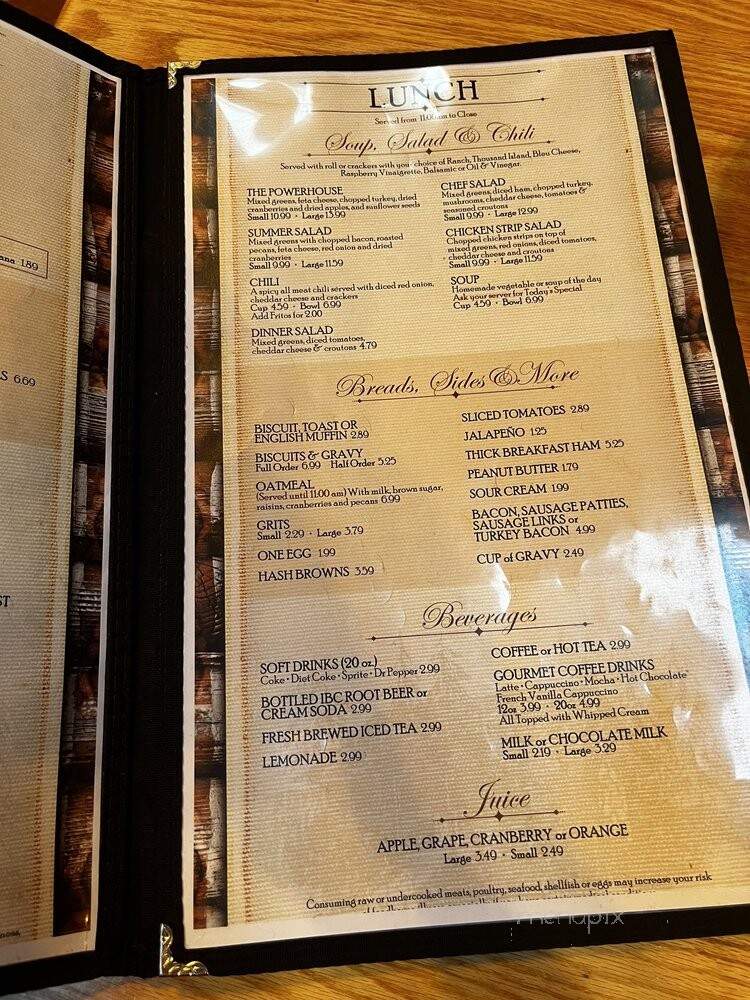 ana 1.89
S 6.69
ST
LUNCH
Served from 11:00am to Close
Soup, Salad & Chili
Served with roll or crackers with your choice of Ranch, Thousand Island, Bleu Cheese,
Raspberry Vinaigrette, Balsamic or Oil & Vinegar.
THE POWERHOUSE
Mixed greens, feta cheese, chopped turkey, dried
cranberries and dried apples, and sunflower seeds
Small 10.99 • Large 13.99
SUMMER SALAD
Mixed greens with chopped bacon, roasted
pecans, feta cheese, red onion and dried
cranberries
Small 9.99 • Large 11.59
CHILI
A spicy all meat chili served with diced red onion,
cheddar cheese and crackers
Cup 4.59 • Bowl 6.99
Add Fritos for 2.00
DINNER SALAD
Mixed greens, diced tomatoes,
cheddar cheese & croutons 4.79
CHEF SALAD
Mixed greens, diced ham, chopped turkey,
mushrooms, cheddar cheese, tomatoes &
seasoned croutons
Small 9.99 • Large 12.99
CHICKEN STRIP SALAD
Chopped chicken strips on top of
mixed greens, red onions, diced tomatoes,
cheddar cheese and croutons
Small 9.99 • Large 11.59
SOUP
Homemade vegetable or soup of the day
Ask your server for Today's Special
Cup 4.59 • Bowl 6.99
Breads, Sides & More
BISCUIT, TOAST OR
ENGLISH MUFFIN 2.89
BISCUITS & GRAVY
Full Order 6.99 Half Order 5.25
OATMEAL
(Served until 11:00 am) With milk, brown sugar,
raisins, cranberries and pecans 6.99
GRITS
Small 2.29 • Large 3.79
ONE EGG 1.99
HASH BROWNS 3.59
SLICED TOMATOES 2.89
JALAPEÑO 1.25
THICK BREAKFAST HAM 5.25
PEANUT BUTTER 1.79
SOUR CREAM 1.99
BACON, SAUSAGE PATTIES,
SAUSAGE LINKS or
TURKEY BACON 4.99
CUP of GRAVY 2.49
Beverages
SOFT DRINKS (20 oz.)
Coke • Diet Coke • Sprite • Dr Pepper 2.99
BOTTLED IBC ROOT BEER or
CREAM SODA 2.99
FRESH BREWED ICED TEA 2.99
LEMONADE 2.99
COFFEE or HOT TEA 2.99
GOURMET COFFEE DRINKS
Latte • Cappuccino • Mocha • Hot Chocolate
French Vanilla Cappuccino
12oz 3.99 • 20oz 4.99
All Topped with Whipped Cream
MILK or CHOCOLATE MILK
Small 2.19 • Large 3.29
Juice
APPLE, GRAPE, CRANBERRY or ORANGE
Large 3.49 • Small 2.49
Consuming raw or undercooked meats, poultry, seafood, shellfish or eggs may increase your risk